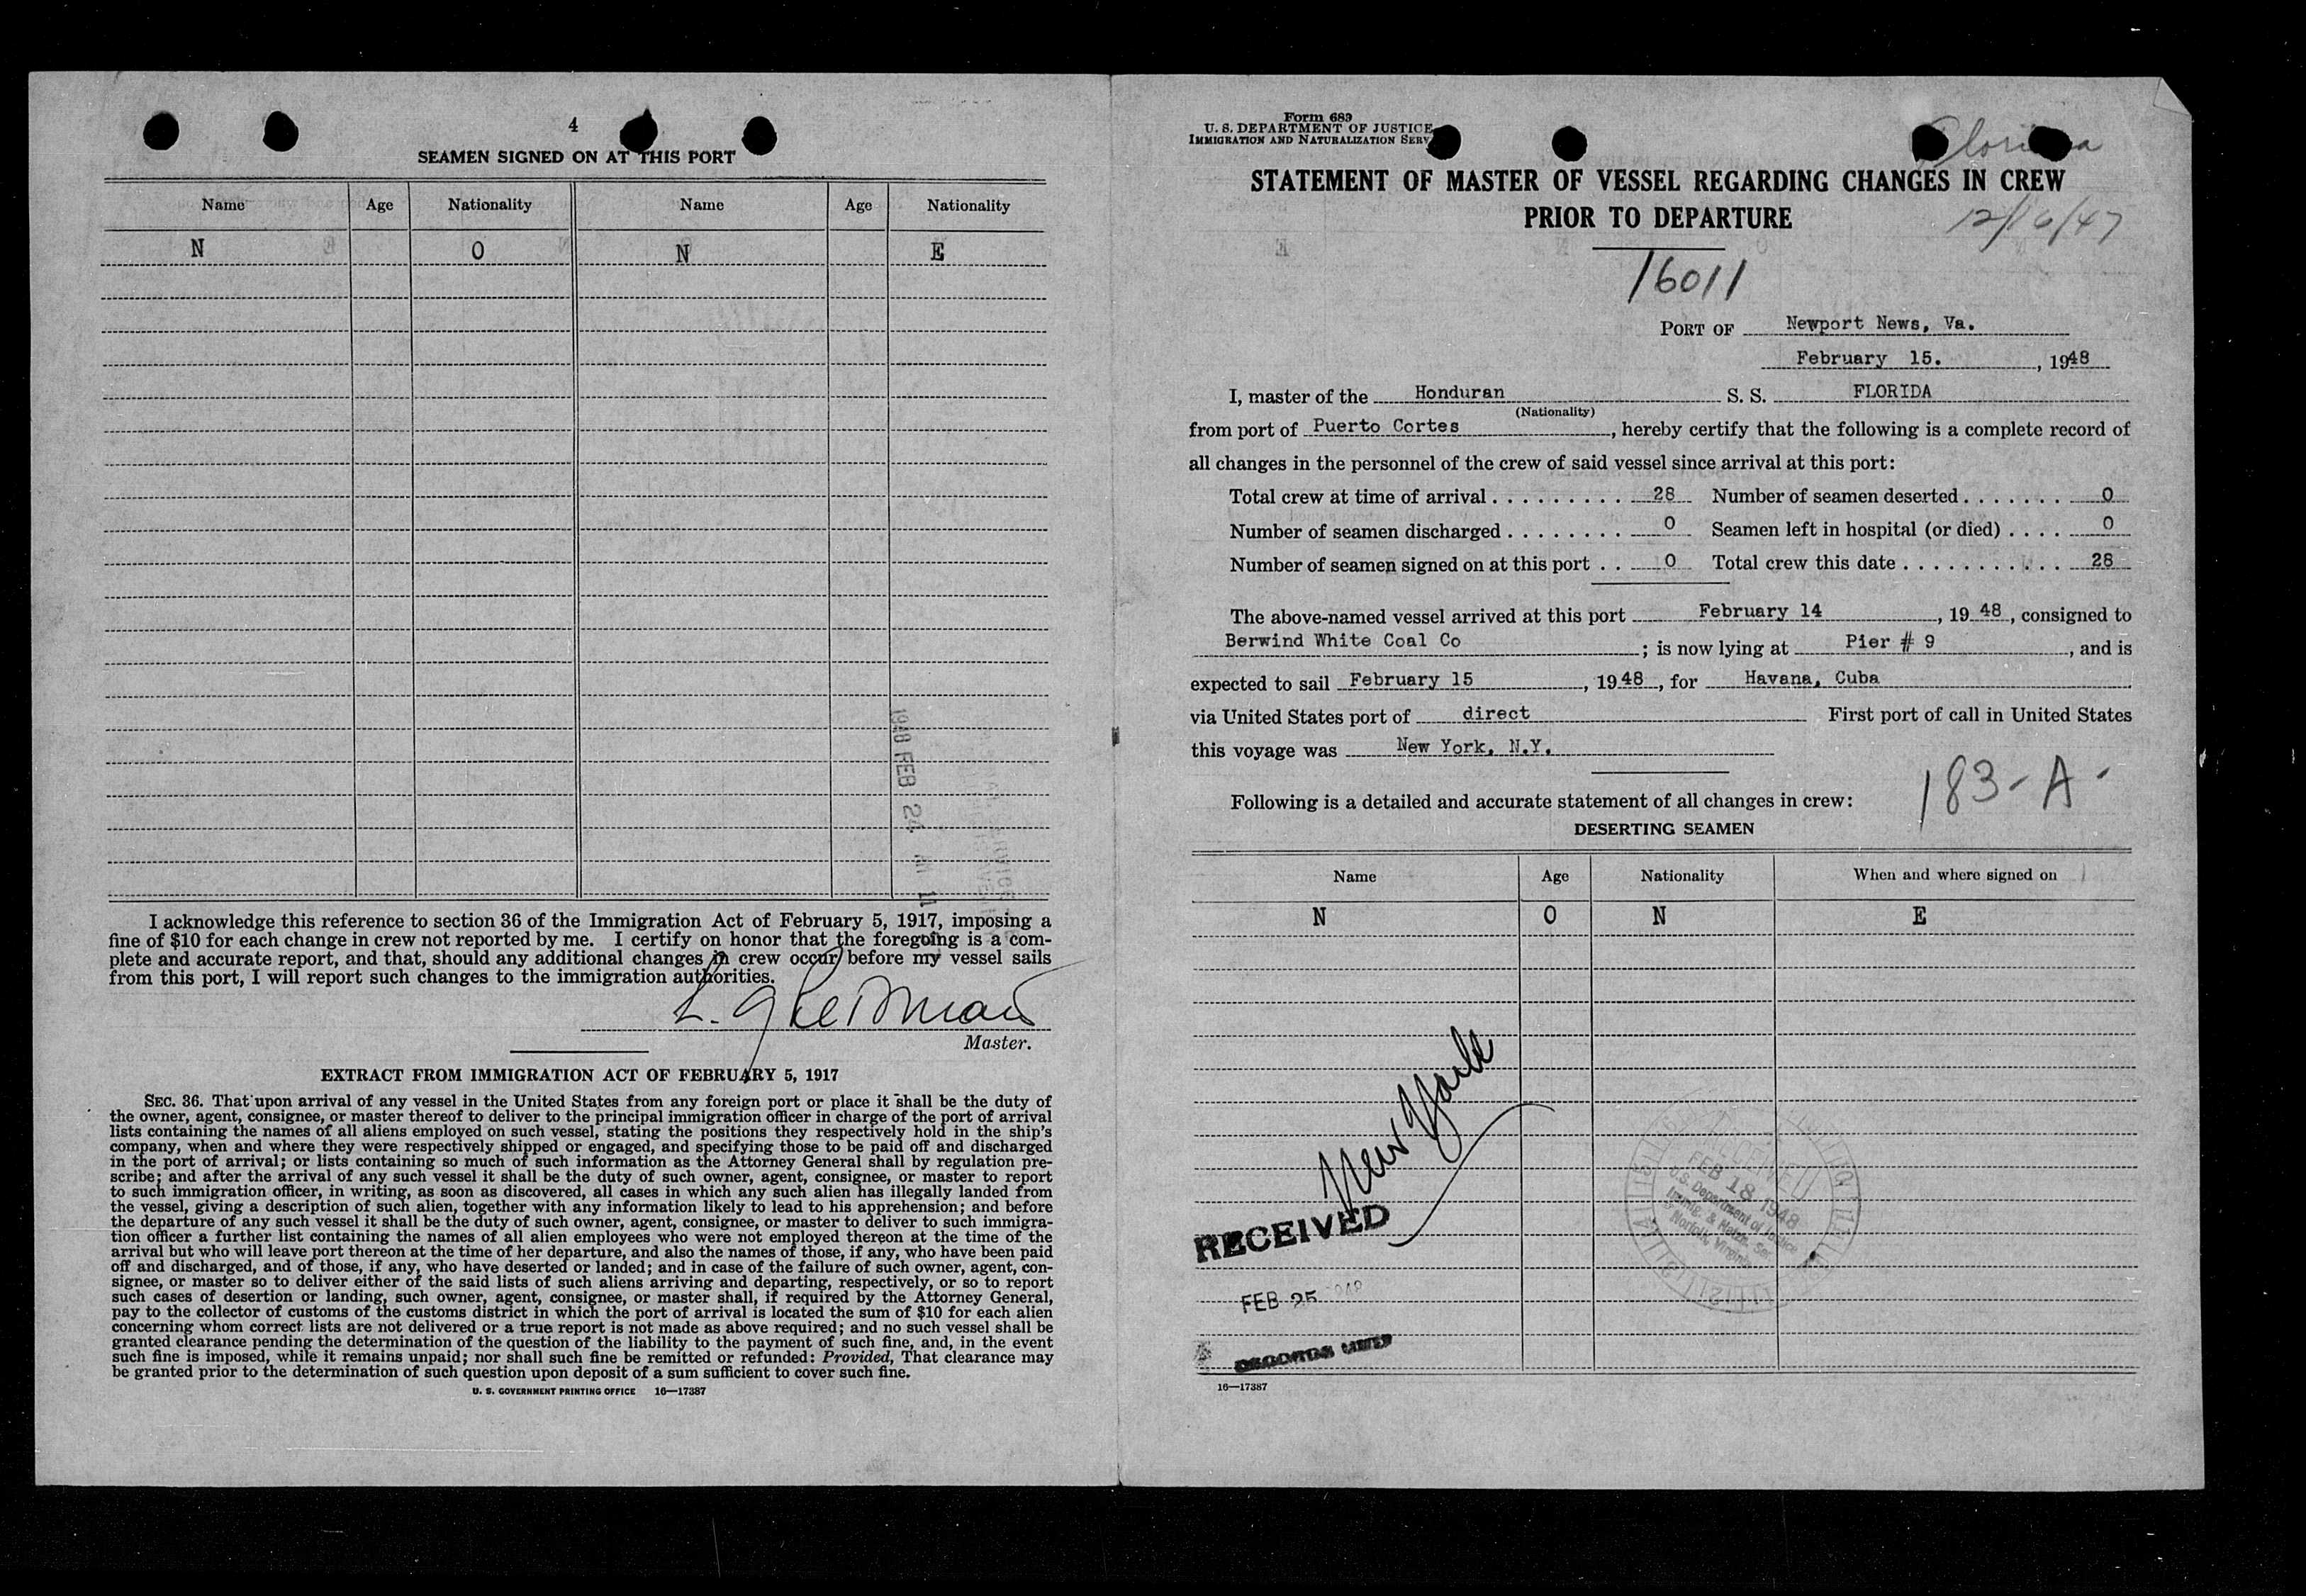 4
SEAMEN SIGNED ON AT THIS PORT
Name Age Nationality Name Age Nationality
N O N E
1948 FEB 24
I acknowledge this reference to section 36 of the Immigration Act of February 5, 1917, imposing a
fine of $10 for each change in crew not reported by me. I certify on honor that the foregoing is a com-
plete and accurate report, and that, should any additional changes in crew occur before my vessel sails
from this port, I will report such changes to the immigration authorities.
L.
Master.
EXTRACT FROM IMMIGRATION ACT OF FEBRUARY 5, 1917
SEC. 36. That upon arrival of any vessel in the United States from any foreign port or place it shall be the duty of
the owner, agent, consignee, or master thereof to deliver to the principal immigration officer in charge of the port of arrival
lists containing the names of all aliens employed on such vessel, stating the positions they respectively hold in the ship's
company, when and where they were respectively shipped or engaged, and specifying those to be paid off and discharged
in the port of arrival; or lists containing so much of such information as the Attorney General shall by regulation pre-
scribe; and after the arrival of any such vessel it shall be the duty of such owner, agent, consignee, or master to report
to such immigration officer, in writing, as soon as discovered, all cases in which any such alien has illegally landed from
the vessel, giving a description of such alien, together with any information likely to lead to his apprehension; and before
the departure of any such vessel it shall be the duty of such owner, agent, consignee, or master to deliver to such immigra-
tion officer a further list containing the names of all alien employees who were not employed thereon at the time of the
arrival but who will leave port thereon at the time of her departure, and also the names of those, if any, who have been paid
off and discharged, and of those, if any, who have deserted or landed; and in case of the failure of such owner, agent, con-
signee, or master so to deliver either of the said lists of such aliens arriving and departing, respectively, or so to report
such cases of desertion or landing, such owner, agent, consignee, or master shall, if required by the Attorney General,
pay to the collector of customs of the customs district in which the port of arrival is located the sum of $10 for each alien
concerning whom correct lists are not delivered or a true report is not made as above required; and no such vessel shall be
granted clearance pending the determination of the question of the liability to the payment of such fine, and, in the event
such fine is imposed, while it remains unpaid; nor shall such fine be remitted or refunded: Provided, That clearance may
be granted prior to the determination of such question upon deposit of a sum sufficient to cover such fine.
U. S. GOVERNMENT PRINTING OFFICE 16—17387
Form 689
U. S. DEPARTMENT OF JUSTICE
IMMIGRATION AND NATURALIZATION SERV
Florida
STATEMENT OF MASTER OF VESSEL REGARDING CHANGES IN CREW
PRIOR TO DEPARTURE
12/16/47
16011
PORT OF Newport News, Va.
February 15. , 1948
I, master of the Honduran S. S. FLORIDA
(Nationality)
from port of Puerto Cortes , hereby certify that the following is a complete record of
all changes in the personnel of the crew of said vessel since arrival at this port:
Total crew at time of arrival . . . . . . . . . 28 Number of seamen deserted . . . . . . . 0
Number of seamen discharged . . . . . . . . 0 Seamen left in hospital (or died) . . . . 0
Number of seamen signed on at this port . . 0 Total crew this date . . . . . . . . . . . . 28
The above-named vessel arrived at this port February 14 , 19 48 , consigned to
Berwind White Coal Co ; is now lying at Pier # 9 , and is
expected to sail February 15 , 19 48 , for Havana, Cuba
via United States port of direct First port of call in United States
this voyage was New York, N.Y.
183-A-
Following is a detailed and accurate statement of all changes in crew:
DESERTING SEAMEN
Name Age Nationality When and where signed on
N O N E
New York
RECEIVED
FEB 25 1948
RECEIVED
FEB 18 1948
U.S. Department of Justice
Immig. & Natzn. Ser.
Norfolk, Virginia
16—17387